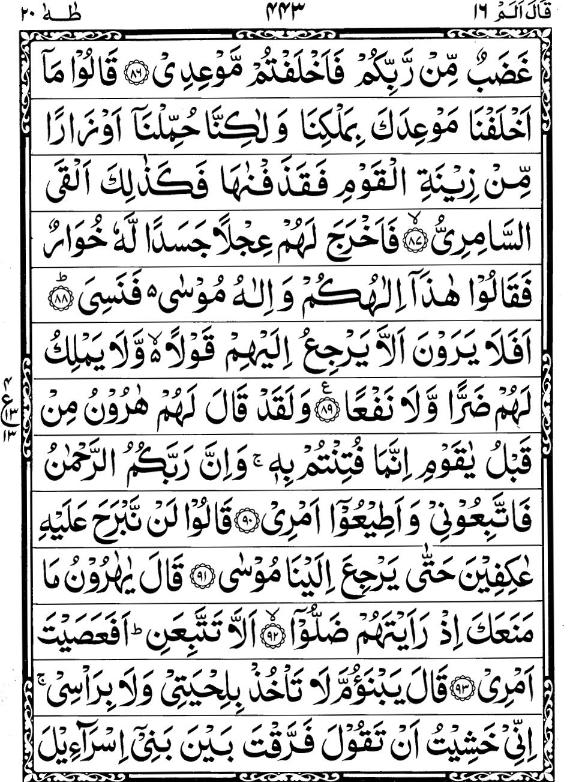 قَالَ اَلَمْ ١٦ ٤٤٣ طٰهٰ ٢٠
غَضَبٌ مِّنْ رَّبِّكُمْ فَاَخْلَفْتُمْ مَّوْعِدِیْ ﴿٨٦﴾ قَالُوْا مَاۤ
اَخْلَفْنَا مَوْعِدَكَ بِمَلْكِنَا وَلٰكِنَّا حُمِّلْنَاۤ اَوْزَارًا
مِّنْ زِیْنَةِ الْقَوْمِ فَقَذَفْنٰهَا فَكَذٰلِكَ اَلْقَی
السَّامِرِیُّ ﴿٨٧﴾ۙ فَاَخْرَجَ لَهُمْ عِجْلًا جَسَدًا لَّهٗ خُوَارٌ
فَقَالُوْا هٰذَاۤ اِلٰهُكُمْ وَاِلٰهُ مُوْسٰی ۥ فَنَسِیَ ﴿٨٨﴾ؕ
اَفَلَا یَرَوْنَ اَلَّا یَرْجِعُ اِلَیْهِمْ قَوْلًا ۙ۬ وَّلَا یَمْلِكُ
لَهُمْ ضَرًّا وَّلَا نَفْعًا ﴿٨٩﴾ ع وَلَقَدْ قَالَ لَهُمْ هٰرُوْنُ مِنْ
٤ ع ١٣ ١٣
قَبْلُ یٰقَوْمِ اِنَّمَا فُتِنْتُمْ بِهٖ ۚ وَاِنَّ رَبَّكُمُ الرَّحْمٰنُ
فَاتَّبِعُوْنِیْ وَاَطِیْعُوْۤا اَمْرِیْ ﴿٩٠﴾ قَالُوْا لَنْ نَّبْرَحَ عَلَیْهِ
عٰكِفِیْنَ حَتّٰی یَرْجِعَ اِلَیْنَا مُوْسٰی ﴿٩١﴾ قَالَ یٰهٰرُوْنُ مَا
مَنَعَكَ اِذْ رَاَیْتَهُمْ ضَلُّوْۤا ﴿٩٢﴾ۙ اَلَّا تَتَّبِعَنِ ؕ اَفَعَصَیْتَ
اَمْرِیْ ﴿٩٣﴾ قَالَ یَبْنَؤُمَّ لَا تَاْخُذْ بِلِحْیَتِیْ وَلَا بِرَاْسِیْ ۚ
اِنِّیْ خَشِیْتُ اَنْ تَقُوْلَ فَرَّقْتَ بَیْنَ بَنِیْۤ اِسْرَآءِیْلَ